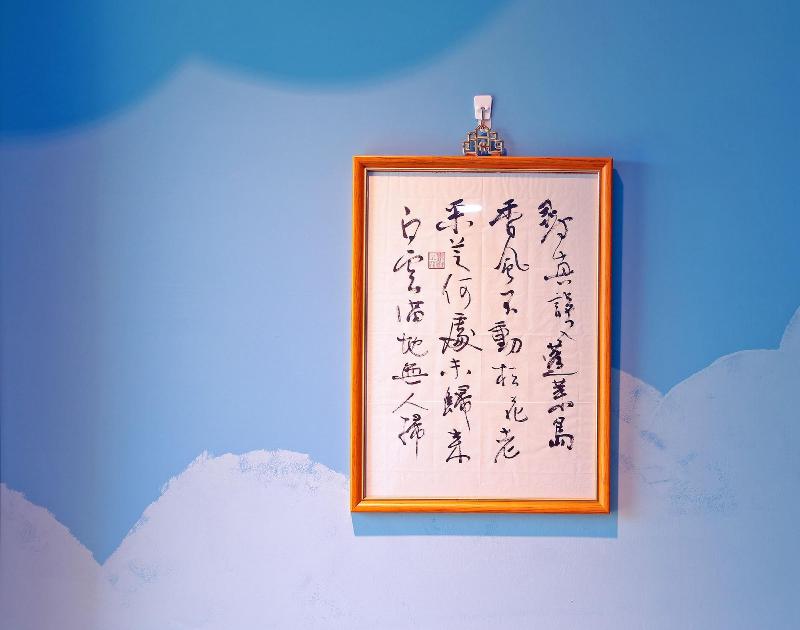 尋真誤入蓬萊島
香風不動松花老
采芝何處未歸來
白雲滿地無人掃